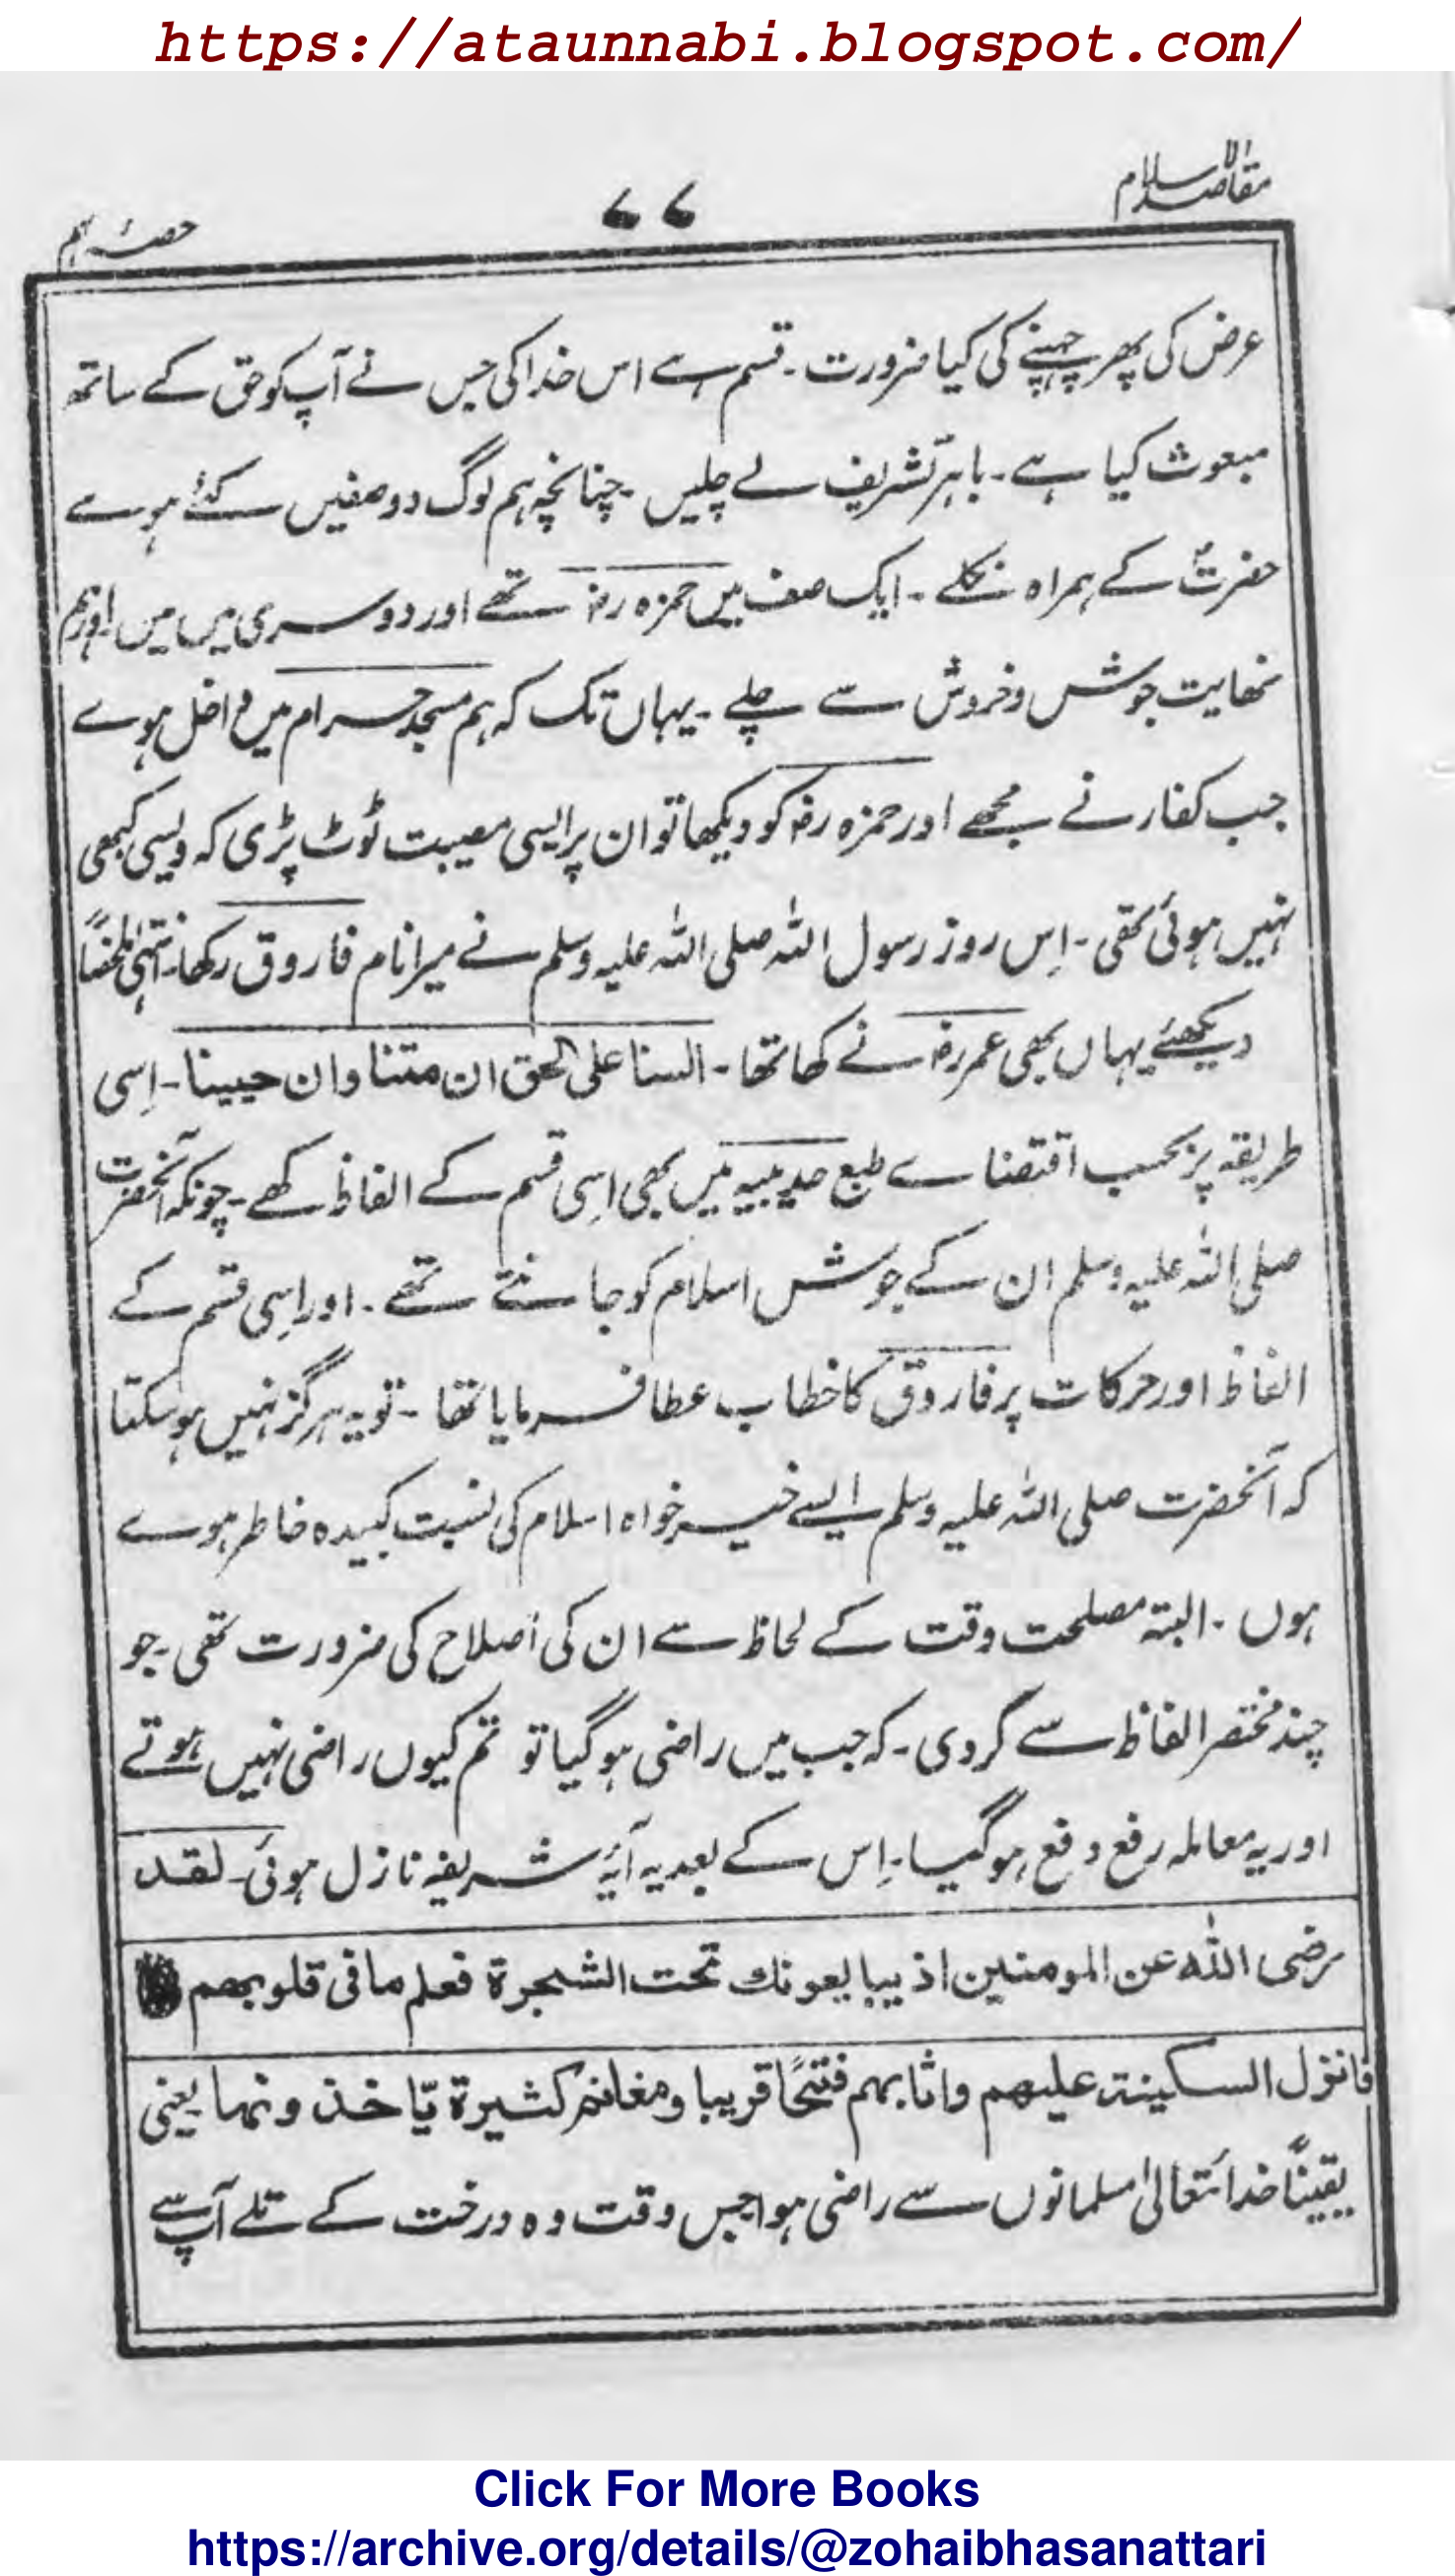 https://ataunnabi.blogspot.com/
مقاصد الاسلام ۷۷ حصہٴ ہم
عرض کی پھر چھپنے کی کیا ضرورت ۔ قسم ہے اس خدا کی جس نے آپ کو حق کے ساتھ
مبعوث کیا ہے ۔ باہر تشریف لے چلیں ۔ چنانچہ ہم لوگ دو صفیں کئے ہوے
حضرتؐ کے ہمراہ نکلے ۔ ایک صف میں حمزہ رضہ تھے اور دوسری میں میں ۔ اور ہم
نھایت جوش وخروش سے چلے ۔ یہاں تک کہ ہم مسجد حرام میں داخل ہوے
جب کفار نے مجھے اور حمزہ رضہ کو دیکھا تو ان پر ایسی مصیبت ٹوٹ پڑی کہ ویسی کبھی
نہیں ہوئی تھی ۔ اِس روز رسول اللہ صلی اللہ علیہ وسلم نے میرا نام فاروق رکھا ۔ انتہیٰ ملخصاً
دیکھئے یہاں بھی عمر رضہ نے کھا تھا ۔ السنا علی الحق ان متنا وان حیینا ۔ اِسی
طریقہ پر بحسب اقتضاے طبع حدیبیہ میں بھی اِسی قسم کے الفاظ کھے ۔ چونکہ آنحضرت
صلی اللہ علیہ وسلم ان کے جوش اسلام کو جانتے تھے ۔ اور اِسی قسم کے
الفاظ اور حرکات پر فاروق کا خطاب عطا فرمایا تھا ۔ تو یہ ہرگز نہیں ہو سکتا
کہ آنحضرت صلی اللہ علیہ وسلم ایسے خیر خواہ اسلام کی نسبت کبیدہ خاطر ہوے
ہوں ۔ البتہ مصلحت وقت کے لحاظ سے ان کی اصلاح کی ضرورت تھی ۔ جو
چند مختصر الفاظ سے کردی ۔ کہ جب میں راضی ہو گیا تو تم کیوں راضی نہیں ہوتے
اور یہ معاملہ رفع دفع ہو گیا ۔ اِس کے بعد یہ آیۂ شریفہ نازل ہوئی ۔ لقد
رضی اللہ عن المومنین اذ یبایعونک تحت الشجرة فعلم ما فی قلوبھم
فانزل السکینة علیھم واثابہم فتحًا قریبا ومغانم کثیرة یّاخذونہا یعنی
یقینًا خدا تعالیٰ مسلمانوں سے راضی ہوا جس وقت وہ درخت کے تلے آپ سے
Click For More Books
https://archive.org/details/@zohaibhasanattari